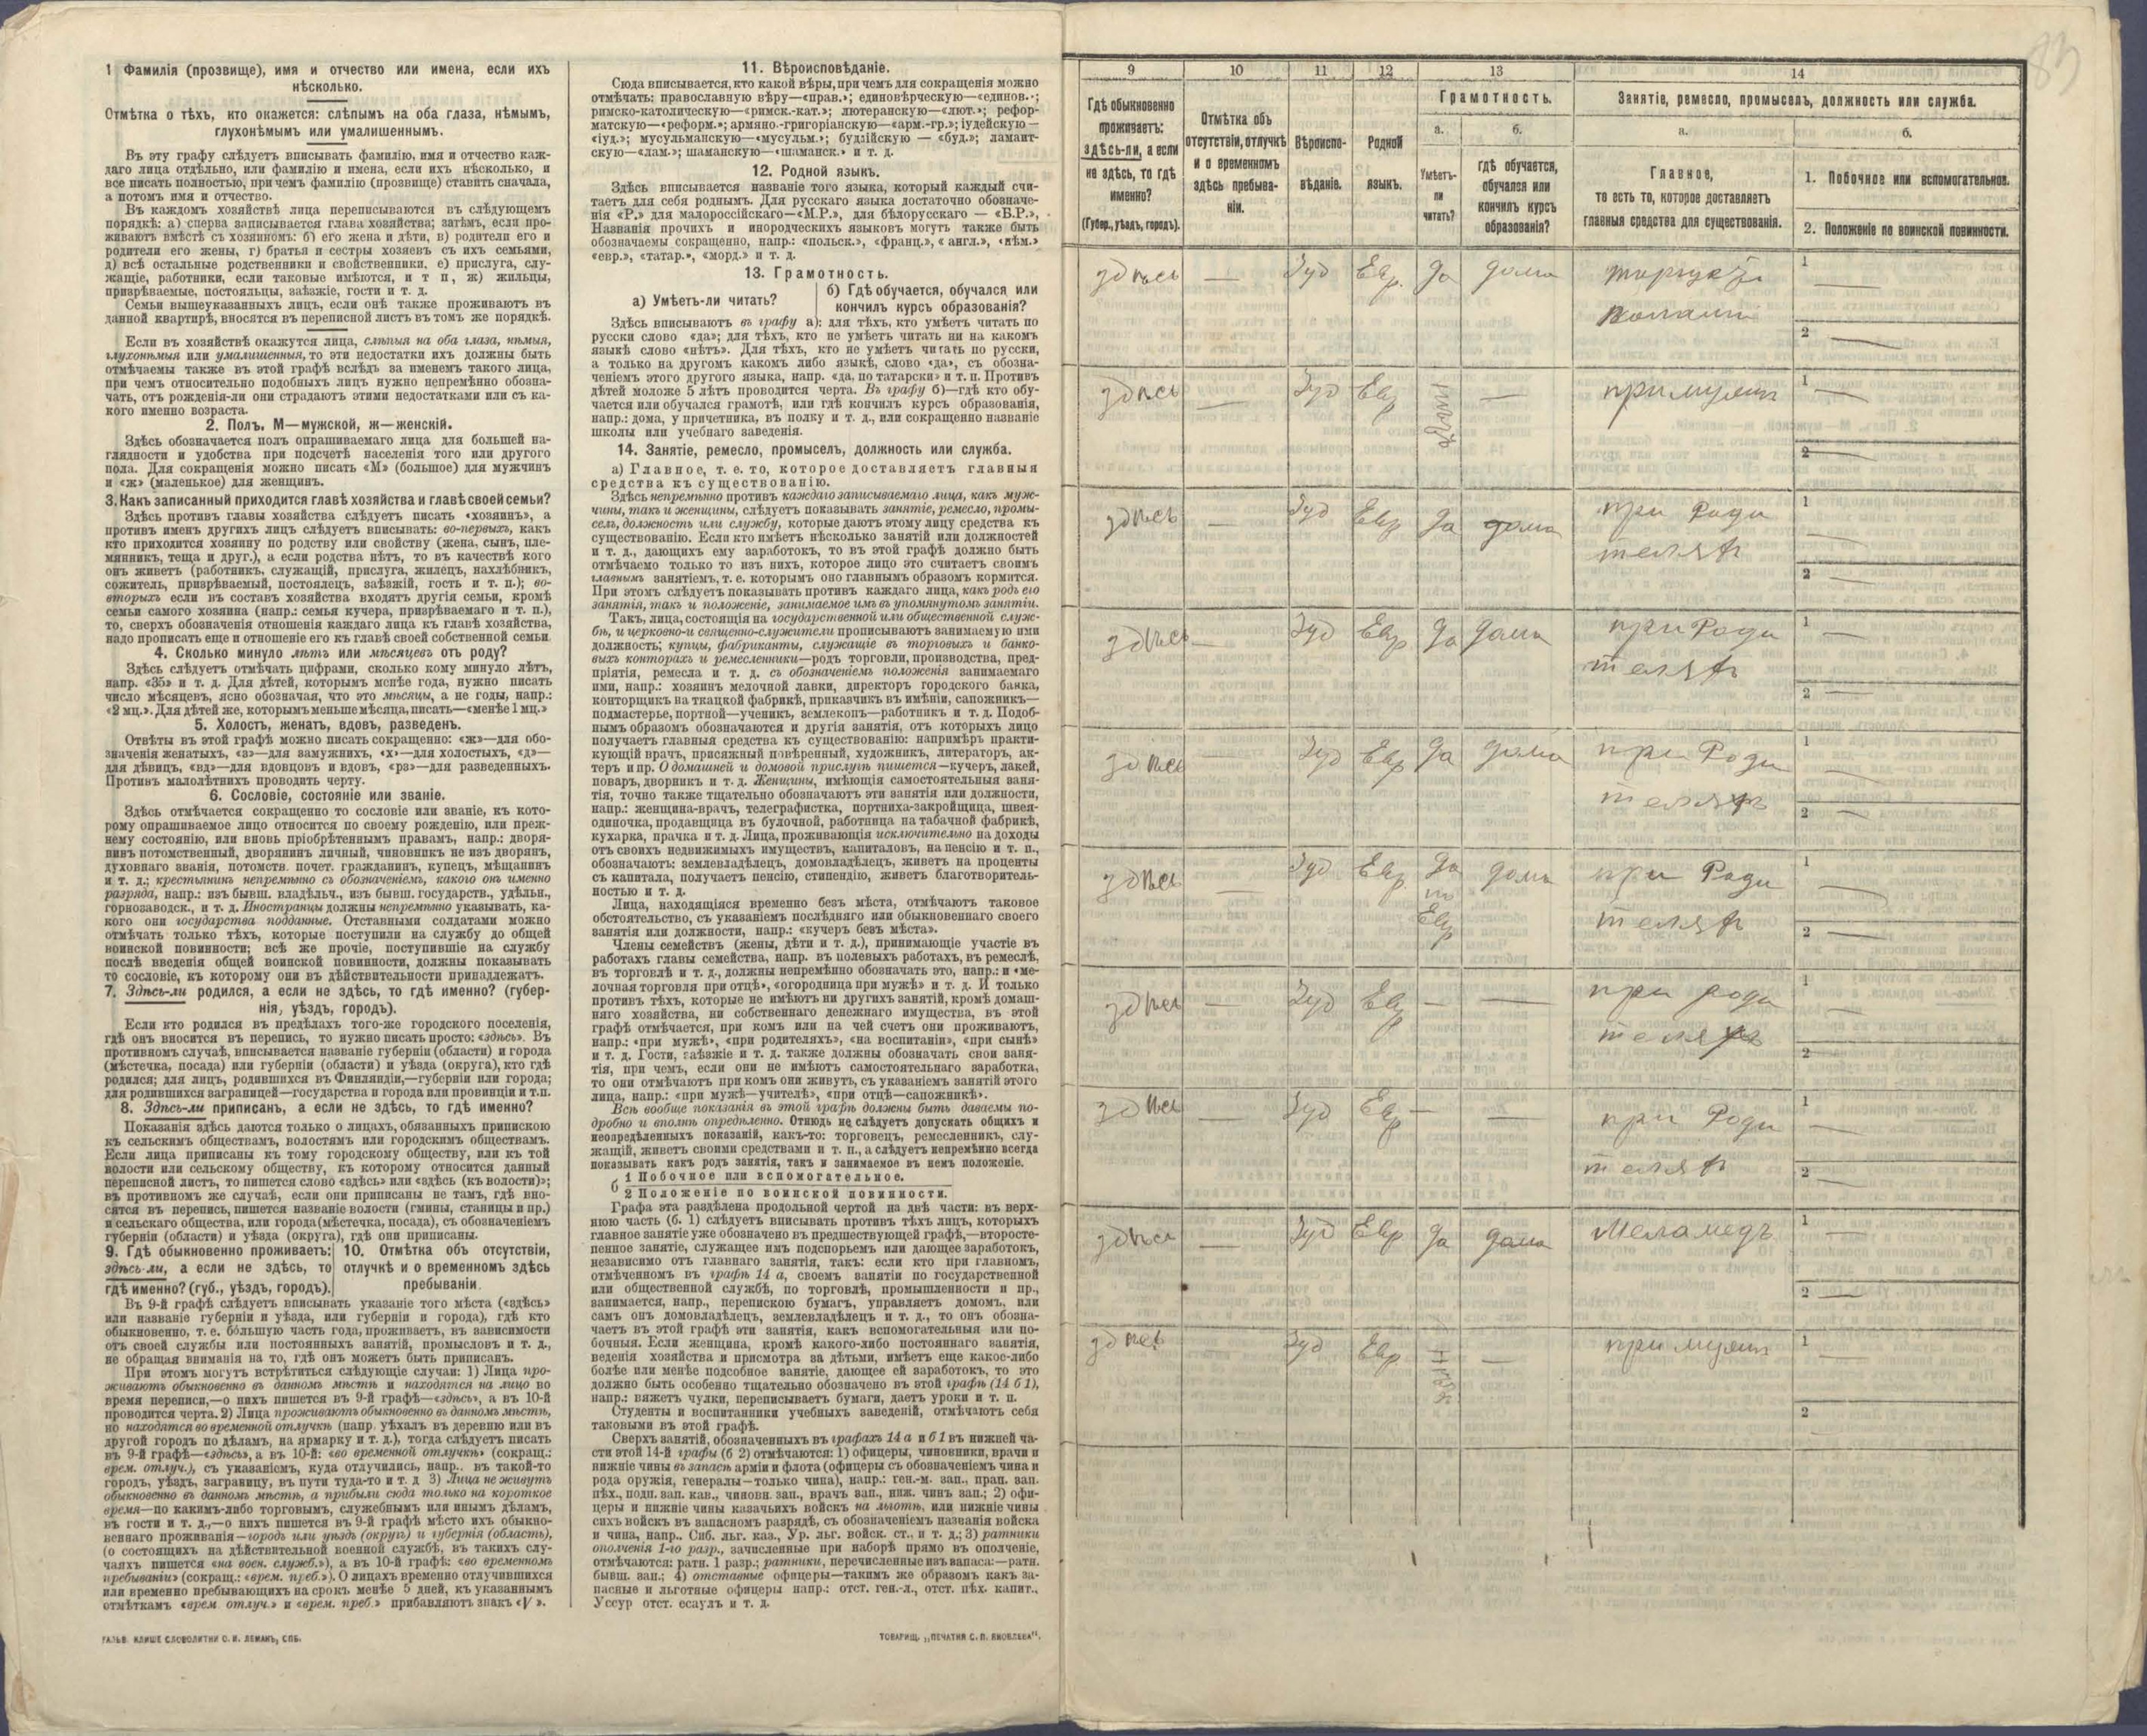 1 Фамилія (прозвище), имя и отчество или имена, если ихъ
нѣсколько.
Отмѣтка о тѣхъ, кто окажется: слѣпымъ на оба глаза, нѣмымъ,
глухонѣмымъ или умалишеннымъ.
Въ эту графу слѣдуетъ вписывать фамилію, имя и отчество каж-
даго лица отдѣльно, или фамилію и имена, если ихъ нѣсколько, и
все писать полностью, при чемъ фамилію (прозвище) ставить сначала,
а потомъ имя и отчество.
Въ каждомъ хозяйствѣ лица переписываются въ слѣдующемъ
порядкѣ: а) сперва записывается глава хозяйства; затѣмъ, если про-
живаютъ вмѣстѣ съ хозяиномъ: б) его жена и дѣти, в) родители его и
родители его жены, г) братья и сестры хозяевъ съ ихъ семьями,
д) всѣ остальные родственники и свойственники, е) прислуга, слу-
жащіе, работники, если таковые имѣются, и т п, ж) жильцы,
призрѣваемые, постояльцы, заѣзжіе, гости и т. д.
Семьи вышеуказанныхъ лицъ, если онѣ также проживаютъ въ
данной квартирѣ, вносятся въ переписной листъ въ томъ же порядкѣ.
Если въ хозяйствѣ окажутся лица, слѣпыя на оба глаза, нѣмыя,
глухонѣмыя или умалишенныя, то эти недостатки ихъ должны быть
отмѣчаемы также въ этой графѣ вслѣдъ за именемъ такого лица,
при чемъ относительно подобныхъ лицъ нужно непремѣнно обозна-
чать, отъ рожденія-ли они страдаютъ этими недостатками или съ ка-
кого именно возраста.
2. Полъ. М—мужской, ж—женскій.
Здѣсь обозначается полъ опрашиваемаго лица для большей на-
глядности и удобства при подсчетѣ населенія того или другого
пола. Для сокращенія можно писать «М» (большое) для мужчинъ
и «ж» (маленькое) для женщинъ.
3. Какъ записанный приходится главѣ хозяйства и главѣ своей семьи?
Здѣсь противъ главы хозяйства слѣдуетъ писать «хозяинъ», а
противъ именъ другихъ лицъ слѣдуетъ вписывать: во-первыхъ, какъ
кто приходится хозяину по родству или свойству (жена, сынъ, пле-
мянникъ, теща и друг.), а если родства нѣтъ, то въ качествѣ кого
онъ живетъ (работникъ, служащій, прислуга, жилецъ, нахлѣбникъ,
сожитель, призрѣваемый, постоялецъ, заѣзжій, гость и т. п.); во-
вторыхъ если въ составъ хозяйства входятъ другія семьи, кромѣ
семьи самого хозяина (напр: семья кучера, призрѣваемаго и т. п.),
то, сверхъ обозначенія отношенія каждаго лица къ главѣ хозяйства,
надо прописать еще и отношеніе его къ главѣ своей собственной семьи.
4. Сколько минуло лѣтъ или мѣсяцевъ отъ роду?
Здѣсь слѣдуетъ отмѣчать цифрами, сколько кому минуло лѣтъ,
напр. «35» и т. д. Для дѣтей, которымъ менѣе года, нужно писать
число мѣсяцевъ, ясно обозначая, что это мѣсяцы, а не годы, напр.:
«2 мц.». Для дѣтей же, которымъ меньше мѣсяца, писать—«менѣе 1 мц.»
5. Холостъ, женатъ, вдовъ, разведенъ.
Отвѣты въ этой графѣ можно писать сокращенно: «ж»—для обо-
значенія женатыхъ, «з»—для замужнихъ, «х»—для холостыхъ, «д»—
для дѣвицъ, «вд»—для вдовцовъ и вдовъ, «рз»—для разведенныхъ.
Противъ малолѣтнихъ проводить черту.
6. Сословіе, состояніе или званіе.
Здѣсь отмѣчается сокращенно то сословіе или званіе, къ кото-
рому опрашиваемое лицо относится по своему рожденію, или преж-
нему состоянію, или вновь пріобрѣтеннымъ правамъ, напр.: дворя-
нинъ потомственный, дворянинъ личный, чиновникъ не изъ дворянъ,
духовнаго званія, потомств. почет. гражданинъ, купецъ, мѣщанинъ
и т. д.; крестьянинъ непремѣнно съ обозначеніемъ, какого онъ именно
разряда, напр.: изъ бывш. владѣльч., изъ бывш. государств., удѣльн.,
горнозаводск., и т. д. Иностранцы должны непремѣнно указывать, ка-
кого они государства подданные. Отставными солдатами можно
отмѣчать только тѣхъ, которые поступили на службу до общей
воинской повинности; всѣ же прочіе, поступившіе на службу
послѣ введенія общей воинской повинности, должны показывать
то сословіе, къ которому они въ дѣйствительности принадлежатъ.
7. Здѣсь-ли родился, а если не здѣсь, то гдѣ именно? (губер-
нія, уѣздъ, городъ).
Если кто родился въ предѣлахъ того-же городского поселенія,
гдѣ онъ вносится въ перепись, то нужно писать просто: «здѣсь». Въ
противномъ случаѣ, вписывается названіе губерніи (области) и города
(мѣстечка, посада) или губерніи (области) и уѣзда (округа), кто гдѣ
родился; для лицъ, родившихся въ Финляндіи,—губерніи или города;
для родившихся заграницей—государства и города или провинціи и т.п.
8. Здѣсь-ли приписанъ, а если не здѣсь, то гдѣ именно?
Показанія здѣсь даются только о лицахъ, обязанныхъ припискою
къ сельскимъ обществамъ, волостямъ или городскимъ обществамъ.
Если лица приписаны къ тому городскому обществу, или къ той
волости или сельскому обществу, къ которому относится данный
переписной листъ, то пишется слово «здѣсь» или «здѣсь (къ волости)»;
въ противномъ же случаѣ, если они приписаны не тамъ, гдѣ вно-
сятся въ перепись, пишется названіе волости (гмины, станицы и пр.)
и сельскаго общества, или города (мѣстечка, посада), съ обозначеніемъ
губерніи (области) и уѣзда (округа), гдѣ они приписаны.
9. Гдѣ обыкновенно проживаетъ:
здѣсь-ли, а если не здѣсь, то
гдѣ именно? (губ., уѣздъ, городъ).
10. Отмѣтка объ отсутствіи,
отлучкѣ и о временномъ здѣсь
пребываніи.
Въ 9-й графѣ слѣдуетъ вписывать указаніе того мѣста («здѣсь»
или названіе губерніи и уѣзда, или губерніи и города), гдѣ кто
обыкновенно, т. е. бо́льшую часть года, проживаетъ, въ зависимости
отъ своей службы или постоянныхъ занятій, промысловъ и т. д.,
не обращая вниманія на то, гдѣ онъ можетъ быть приписанъ.
При этомъ могутъ встрѣтиться слѣдующіе случаи: 1) Лица про-
живаютъ обыкновенно въ данномъ мѣстѣ и находятся на лицо во
время переписи,—о нихъ пишется въ 9-й графѣ—«здѣсь», а въ 10-й
проводится черта. 2) Лица проживаютъ обыкновенно въ данномъ мѣстѣ,
но находятся во временной отлучкѣ (напр. уѣхалъ въ деревню или въ
другой городъ по дѣламъ, на ярмарку и т. д.), тогда слѣдуетъ писать
въ 9-й графѣ—«здѣсь», а въ 10-й: «во временной отлучкѣ» (сокращ.:
врем. отлуч.), съ указаніемъ, куда отлучились, напр.. въ такой-то
городъ, уѣздъ, заграницу, въ пути туда-то и т. д 3) Лица не живутъ
обыкновенно въ данномъ мѣстѣ, а прибыли сюда только на короткое
время—по какимъ-либо торговымъ, служебнымъ или инымъ дѣламъ,
въ гости и т. д.,—о нихъ пишется въ 9-й графѣ мѣсто ихъ обыкно-
веннаго проживанія—городъ или уѣздъ (округъ) и губернія (область),
(о состоящихъ на дѣйствительной военной службѣ, въ такихъ слу-
чаяхъ пишется «на воен. служб.»), а въ 10-й графѣ: «во временномъ
пребываніи» (сокращ.: «врем. преб.»). О лицахъ временно отлучившихся
или временно пребывающихъ на срокъ менѣе 5 дней, къ указаннымъ
отмѣткамъ «врем. отлуч.» и «врем. преб.» прибавляютъ знакъ «V».
ГАЛЬВ. КЛИШЕ СЛОВОЛИТНИ О. И. ЛЕМАНЪ, СПБ.
11. Вѣроисповѣданіе.
Сюда вписывается, кто какой вѣры, при чемъ для сокращенія можно
отмѣчать: православную вѣру—«прав.»; единовѣрческую—«единов.»;
римско-католическую—«римск.-кат.»; лютеранскую—«лют.»; рефор-
матскую—«реформ.»; армяно-григоріанскую—«арм.-гр.»; іудейскую—
«іуд.»; мусульманскую—«мусульм.»; буддійскую — «буд.»; ламаит-
скую—«лам.»; шаманскую—«шаманск.» и т. д.
12. Родной языкъ.
Здѣсь вписывается названіе того языка, который каждый счи-
таетъ для себя роднымъ. Для русскаго языка достаточно обозначе-
нія «Р.» для малороссійскаго—«М.Р.», для бѣлорусскаго — «Б.Р.»,
Названія прочихъ и инородческихъ языковъ могутъ также быть
обозначаемы сокращенно, напр.: «польск.», «франц.», «англ.», «нѣм.»
«евр.», «татар.», «морд.» и т. д.
13. Грамотность.
а) Умѣетъ-ли читать?
б) Гдѣ обучается, обучался или
кончилъ курсъ образованія?
Здѣсь вписываютъ въ графу а): для тѣхъ, кто умѣетъ читать по
русски слово «да»; для тѣхъ, кто не умѣетъ читать ни на какомъ
языкѣ слово «нѣтъ». Для тѣхъ, кто не умѣетъ читать по русски,
а только на другомъ какомъ либо языкѣ, слово «да», съ обозна-
ченіемъ этого другого языка, напр. «да, по татарски» и т. п. Противъ
дѣтей моложе 5 лѣтъ проводится черта. Въ графу б)—гдѣ кто обу-
чается или обучался грамотѣ, или гдѣ кончилъ курсъ образованія,
напр.: дома, у причетника, въ полку и т. д., или сокращенно названіе
школы или учебнаго заведенія.
14. Занятіе, ремесло, промыселъ, должность или служба.
а) Главное, т. е. то, которое доставляетъ главныя
средства къ существованію.
Здѣсь непремѣнно противъ каждаго записываемаго лица, какъ муж-
чины, такъ и женщины, слѣдуетъ показывать занятіе, ремесло, промы-
селъ, должность или службу, которые даютъ этому лицу средства къ
существованію. Если кто имѣетъ нѣсколько занятій или должностей
и т. д., дающихъ ему заработокъ, то въ этой графѣ должно быть
отмѣчаемо только то изъ нихъ, которое лицо это считаетъ своимъ
главнымъ занятіемъ, т. е. которымъ оно главнымъ образомъ кормится.
При этомъ слѣдуетъ показывать противъ каждаго лица, какъ родъ его
занятія, такъ и положеніе, занимаемое имъ въ упомянутомъ занятіи.
Такъ, лица, состоящія на государственной или общественной служ-
бѣ, и церковно-и священно-служители прописываютъ занимаемую ими
должность; купцы, фабриканты, служащіе въ торговыхъ и банко-
выхъ конторахъ и ремесленники—родъ торговли, производства, пред-
пріятія, ремесла и т. д. съ обозначеніемъ положенія занимаемаго
ими, напр.: хозяинъ мелочной лавки, директоръ городского банка,
конторщикъ на ткацкой фабрикѣ, приказчикъ въ имѣніи, сапожникъ—
подмастерье, портной—ученикъ, землекопъ—работникъ и т. д. Подоб-
нымъ образомъ обозначаются и другія занятія, отъ которыхъ лицо
получаетъ главныя средства къ существованію: напримѣръ практи-
кующій врачъ, присяжный повѣренный, художникъ, литераторъ, ак-
теръ и пр. О домашней и домовой прислугѣ пишется—кучеръ, лакей,
поваръ, дворникъ и т. д. Женщины, имѣющія самостоятельныя заня-
тія, точно также тщательно обозначаютъ эти занятія или должности,
напр.: женщина-врачъ, телеграфистка, портниха-закройщица, швея-
одиночка, продавщица въ булочной, работница на табачной фабрикѣ,
кухарка, прачка и т. д. Лица, проживающія исключительно на доходы
отъ своихъ недвижимыхъ имуществъ, капиталовъ, на пенсію и т. п.,
обозначаютъ: землевладѣлецъ, домовладѣлецъ, живетъ на проценты
съ капитала, получаетъ пенсію, стипендію, живетъ благотворитель-
ностью и т. д.
Лица, находящіяся временно безъ мѣста, отмѣчаютъ таковое
обстоятельство, съ указаніемъ послѣдняго или обыкновеннаго своего
занятія или должности, напр.: «кучеръ безъ мѣста».
Члены семействъ (жены, дѣти и т. д.), принимающіе участіе въ
работахъ главы семейства, напр. въ полевыхъ работахъ, въ ремеслѣ,
въ торговлѣ и т. д., должны непремѣнно обозначать это, напр.: и «ме-
лочная торговля при отцѣ», «огородница при мужѣ» и т. д. И только
противъ тѣхъ, которые не имѣютъ ни другихъ занятій, кромѣ домаш-
няго хозяйства, ни собственнаго денежнаго имущества, въ этой
графѣ отмѣчается, при комъ или на чей счетъ они проживаютъ,
напр.: «при мужѣ», «при родителяхъ», «на воспитаніи», «при сынѣ»
и т. д. Гости, заѣзжіе и т. д. также должны обозначать свои заня-
тія, при чемъ, если они не имѣютъ самостоятельнаго заработка,
то они отмѣчаютъ при комъ они живутъ, съ указаніемъ занятій этого
лица, напр.: «при мужѣ—учителѣ», «при отцѣ—сапожникѣ».
Всѣ вообще показанія въ этой графѣ должны быть даваемы по-
дробно и вполнѣ опредѣленно. Отнюдь не слѣдуетъ допускать общихъ и
неопредѣленныхъ показаній, какъ-то: торговецъ, ремесленникъ, слу-
жащій, живетъ своими средствами и т. п., а слѣдуетъ непремѣнно всегда
показывать какъ родъ занятія, такъ и занимаемое въ немъ положеніе.
б 1 Побочное или вспомогательное.
2 Положеніе по воинской повинности.
Графа эта раздѣлена продольной чертой на двѣ части: въ верх-
нюю часть (б. 1) слѣдуетъ вписывать противъ тѣхъ лицъ, которыхъ
главное занятіе уже обозначено въ предшествующей графѣ,—второсте-
пенное занятіе, служащее имъ подспорьемъ или дающее заработокъ,
независимо отъ главнаго занятія, такъ: если кто при главномъ,
отмѣченномъ въ графѣ 14 а, своемъ занятіи по государственной
или общественной службѣ, по торговлѣ, промышленности и пр.,
занимается, напр., перепискою бумагъ, управляетъ домомъ, или
самъ онъ домовладѣлецъ, землевладѣлецъ и т. д., то онъ обозна-
чаетъ въ этой графѣ эти занятія, какъ вспомогательныя или по-
бочныя. Если женщина, кромѣ какого-либо постояннаго занятія,
веденія хозяйства и присмотра за дѣтьми, имѣетъ еще какое-либо
болѣе или менѣе подсобное занятіе, дающее ей заработокъ, то это
должно быть особенно тщательно обозначено въ этой графѣ (14 б 1),
напр.: вяжетъ чулки, переписываетъ бумаги, даетъ уроки и т. п.
Студенты и воспитанники учебныхъ заведеній, отмѣчаютъ себя
таковыми въ этой графѣ.
Сверхъ занятій, обозначенныхъ въ графахъ 14 а и б 1 въ нижней ча-
сти этой 14-й графы (б 2) отмѣчаются: 1) офицеры, чиновники, врачи и
нижніе чины въ запасѣ арміи и флота (офицеры съ обозначеніемъ чина и
рода оружія, генералы—только чина), напр.: ген.-м. зап., прап. зап.
пѣх., подп. зап. кав., чиновн. зап., врачъ зап., ниж. чинъ зап.; 2) офи-
церы и нижніе чины казачьихъ войскъ на льготѣ, или нижніе чины
сихъ войскъ въ запасномъ разрядѣ, съ обозначеніемъ названія войска
и чина, напр.. Сиб. льг. каз., Ур. льг. войск. ст., и т. д.; 3) ратники
ополченія 1-го разр., зачисленные при наборѣ прямо въ ополченіе,
отмѣчаются: ратн. 1 разр.; ратники, перечисленные изъ запаса:—ратн.
бывш. зап.; 4) отставные офицеры—такимъ же образомъ какъ за-
пасные и льготные офицеры напр.: отст. ген.-л., отст. пѣх. капит.,
Уссур отст. есаулъ и т. д.
ТОВАРИЩ. „ПЕЧАТНЯ С. П. ЯКОВЛЕВА".
83
9 10 11 12 13 14
Гдѣ обыкновенно
проживаетъ:
здѣсь-ли, а если
не здѣсь, то гдѣ
именно?
(Губер., уѣздъ, городъ).
Отмѣтка объ
отсутствіи, отлучкѣ
и о временномъ
здѣсь пребыва-
ніи.
Вѣроиспо-
вѣданіе.
Родной
языкъ.
Грамотность.
а.
Умѣетъ-
ли
читать?
б.
гдѣ обучается,
обучался или
кончилъ курсъ
образованія?
Занятіе, ремесло, промыселъ, должность или служба.
а.
Главное,
то есть то, которое доставляетъ
главныя средства для существованія.
б.
1. Побочное или вспомогательное.
2. Положеніе по воинской повинности.
здѣсь — Іуд Евр. Да дома 1 —
2 —
здѣсь — Іуд Евр — при мужи 1 —
2 —
здѣсь — Іуд Евр Да дома при Роди 1 —
теляхъ 2 —
здѣсь — Іуд Евр Да дома при Роди 1 —
теляхъ 2 —
здѣсь Іуд Евр Да дома при Роди 1 —
теляхъ 2 —
здѣсь — Іуд Евр Да дома при Роди 1 —
по
Евр теляхъ 2 —
здѣсь — Іуд Евр — — при роди 1 —
теляхъ 2 —
здѣсь — Іуд Евр — — при Роди 1 —
теляхъ 2 —
здѣсь — Іуд Евр Да дома Меламедъ 1 —
2 —
здѣсь Іуд Евр — при мужи 1 —
2 —